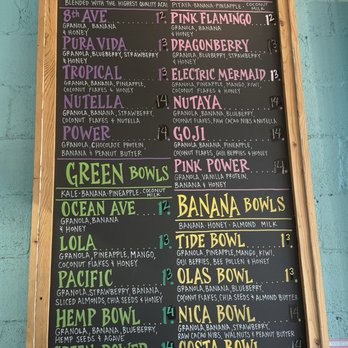 BLENDED WITH THE HIGHEST QUALITY ACAI
8th AVE 12
GRANOLA, BANANA
& HONEY
PURA VIDA 13
GRANOLA, BLUEBERRY, STRAWBERRY
& HONEY
TROPICAL 13
GRANOLA, PINEAPPLE, MANGO,
COCONUT FLAKES & HONEY
NUTELLA 14
GRANOLA, BANANA, STRAWBERRY,
COCONUT FLAKES & NUTELLA
POWER 14
GRANOLA, CHOCOLATE PROTEIN,
BANANA & PEANUT BUTTER
GREEN BOWLS
KALE·BANANA·PINEAPPLE·COCONUT MILK
OCEAN AVE 12
GRANOLA, BANANA
& HONEY
LOLA 13
GRANOLA, PINEAPPLE, MANGO,
COCONUT FLAKES & HONEY
PACIFIC 13
GRANOLA, STRAWBERRY, BANANA,
SLICED ALMONDS, CHIA SEEDS & HONEY
HEMP BOWL 14
GRANOLA, BANANA, BLUEBERRY,
HEMP SEEDS & AGAVE
GREEN POWER
PITAYA·BANANA·PINEAPPLE·COCONUT MILK
PINK FLAMINGO 12
GRANOLA, BANANA
& HONEY
DRAGONBERRY 13
GRANOLA, BLUEBERRY, STRAWBERRY
& HONEY
ELECTRIC MERMAID 13
GRANOLA, PINEAPPLE, MANGO, KIWI,
COCONUT FLAKES & HONEY
NUTAYA 14
GRANOLA, BANANA, BLUEBERRY,
COCONUT FLAKES, RAW CACAO NIBS & NUTELLA
GOJI 14
GRANOLA, BANANA, STRAWBERRY,
COCONUT FLAKES, GOJI BERRIES & HONEY
PINK POWER 14
GRANOLA, VANILLA PROTEIN,
BANANA & HONEY
BANANA BOWLS
BANANA·HONEY·ALMOND MILK
TIDE BOWL 13
GRANOLA, PINEAPPLE, MANGO, KIWI,
GOJI BERRIES, BEE POLLEN & HONEY
OLAS BOWL 13
GRANOLA, BANANA, BLUEBERRY,
COCONUT FLAKES, CHIA SEEDS & ALMOND BUTTER
NICA BOWL 14
GRANOLA, BANANA, STRAWBERRY,
RAW CACAO NIBS, WALNUTS & PEANUT BUTTER
COSTA BOWL